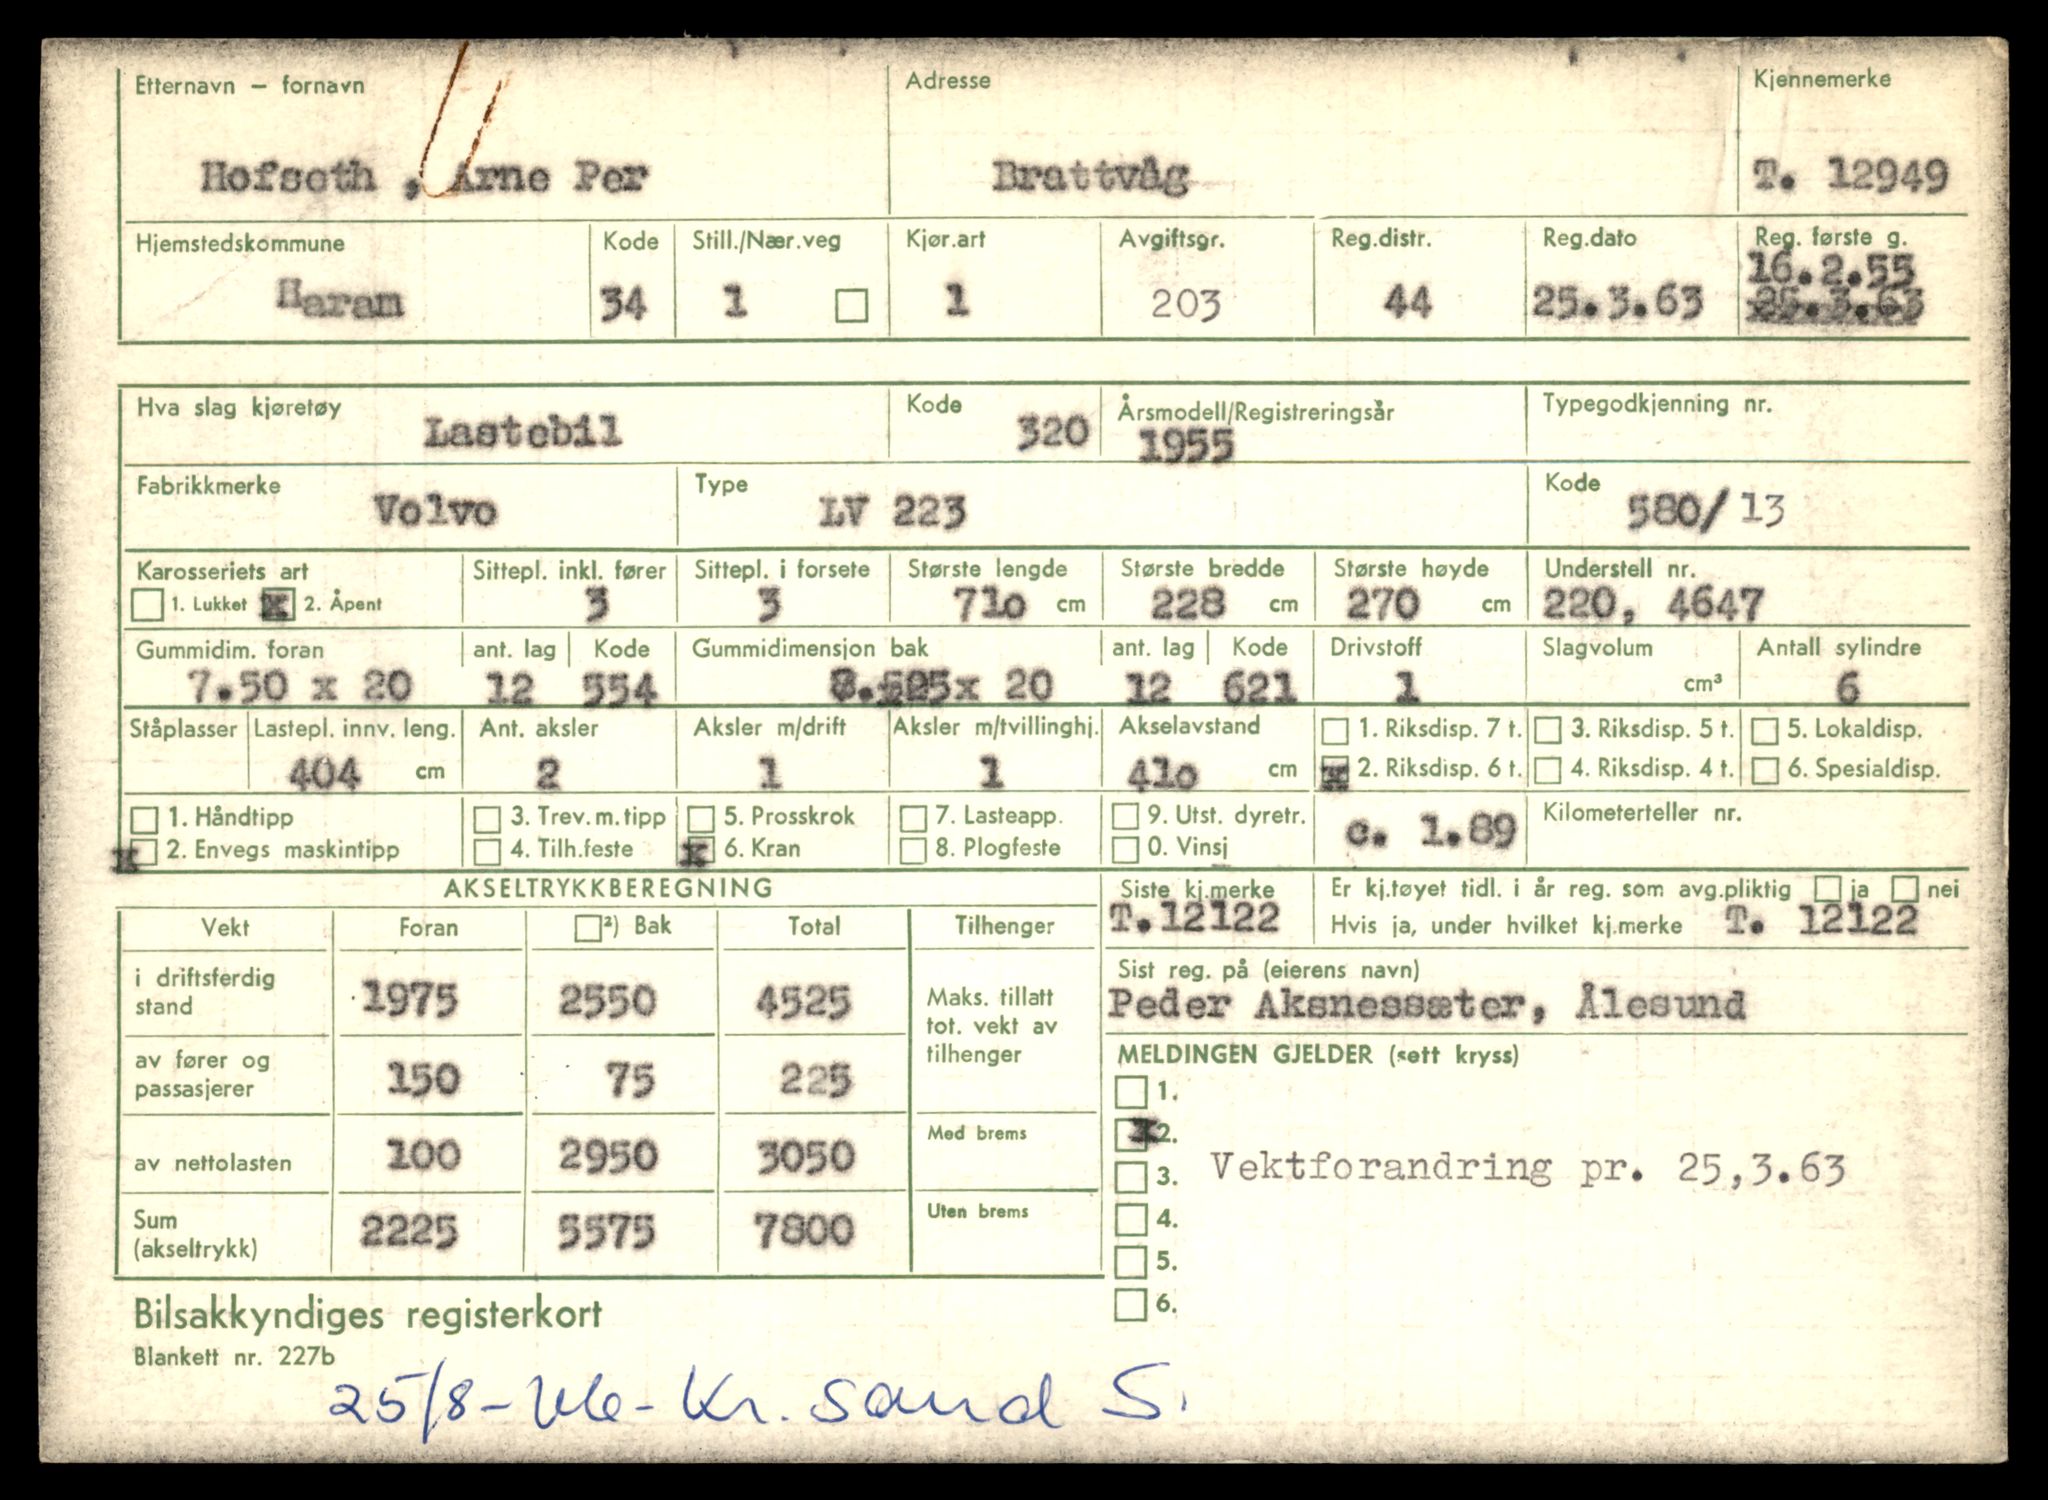 Etternavn – fornavn Adresse Kjennemerke
Hofseth , Arne Per Brattvåg T. 12949
Hjemstedskommune Kode Still./Nær.veg Kjør.art Avgiftsgr. Reg.distr. Reg.dato Reg. første g.
16.2.55
Haram 34 1 1 203 44 25.3.63 25.3.63
Hva slag kjøretøy Kode Årsmodell/Registreringsår Typegodkjenning nr.
Lastebil 320 1955
Fabrikkmerke Type Kode
Volvo LV 223 580/13
Karosseriets art Sittepl. inkl. fører Sittepl. i forsete Største lengde Største bredde Største høyde Understell nr.
1. Lukket x 2. Åpent 3 3 71o cm 228 cm 270 cm 220, 4647
Gummidim. foran ant. lag Kode Gummidimensjon bak ant. lag Kode Drivstoff Slagvolum Antall sylindre
7.50 x 20 12 554 x 20 12 621 1 cm³ 6
Ståplasser Lastepl. innv. leng. Ant. aksler Aksler m/drift Aksler m/tvillinghj. Akselavstand 1. Riksdisp. 7 t. 3. Riksdisp. 5 t. 5. Lokaldisp.
404 cm 2 1 1 41o cm x 2. Riksdisp. 6 t. 4. Riksdisp. 4 t. 6. Spesialdisp.
1. Håndtipp 3. Trev. m. tipp 5. Prosskrok 7. Lasteapp. 9. Utst. dyretr. c. 1.89 Kilometerteller nr.
x 2. Envegs maskintipp 4. Tilh.feste x 6. Kran 8. Plogfeste 0. Vinsj
AKSELTRYKKBEREGNING Siste kj.merke Er kj.tøyet tidl. i år reg. som avg.pliktig ja nei
Vekt Foran ²) Bak Total Tilhenger T.12122 Hvis ja, under hvilket kj.merke T. 12122
i driftsferdig stand 1975 2550 4525 Maks. tillatt tot. vekt av tilhenger
Sist reg. på (eierens navn)
Peder Aksnessæter, Ålesund
av fører og passasjerer 150 75 225
MELDINGEN GJELDER (sett kryss)
1.
av nettolasten 100 2950 3050 Med brems
x 2.
3. Vektforandring pr. 25,3.63
Sum (akseltrykk) 2225 5575 7800 Uten brems
4.
5.
6.
Bilsakkyndiges registerkort
Blankett nr. 227b
25/8- - Kr. sand S.